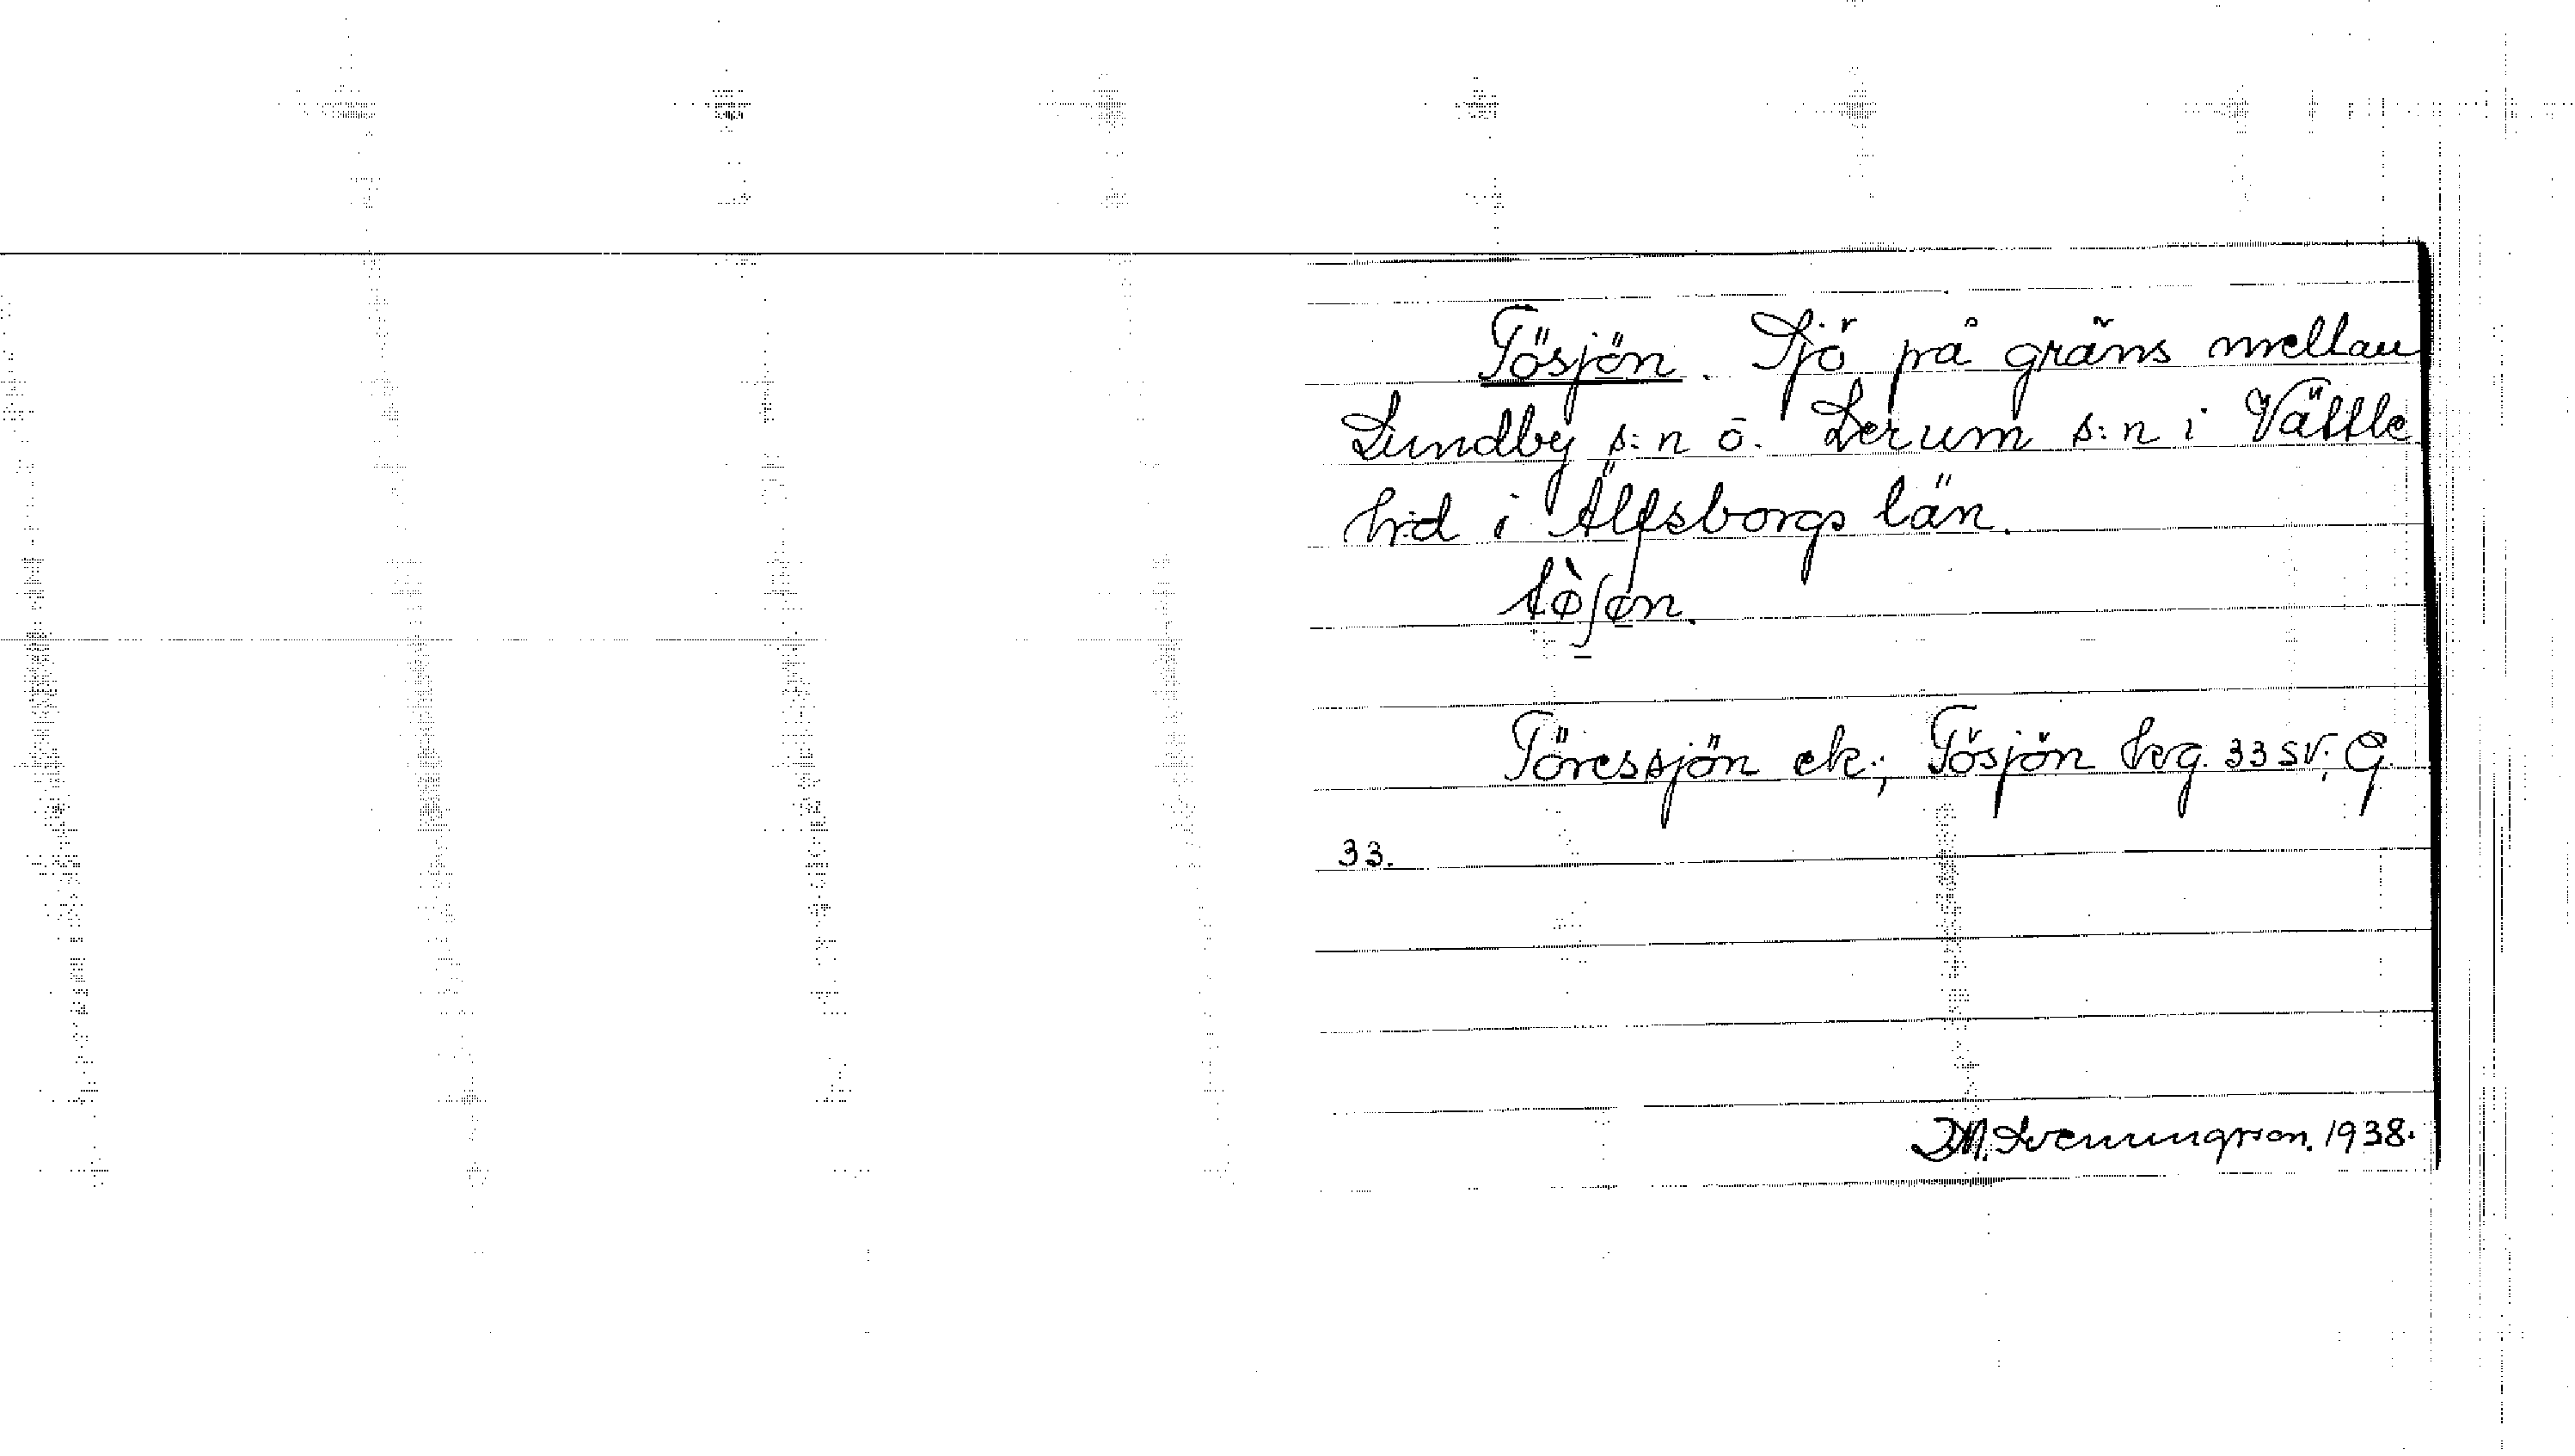 Tösjön. Sjö på gräns mellan
Lundby s:n o. Lerum s:n i Vättle
hd i Älfsborgs län.
tòʃøn.
Töressjön ek.; Tösjön hrg. 33 SV; G
33.
D.M. Svenningson. 1938.